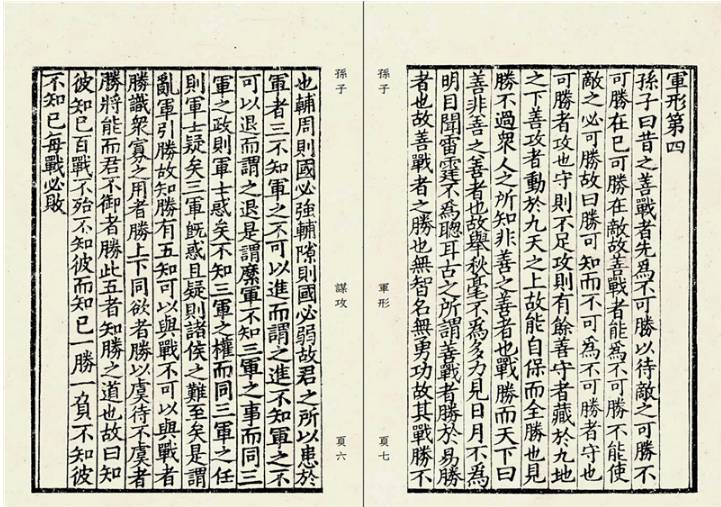 也輔周則國必強輔隙則國必弱故君之所以患於
軍者三不知軍之不可以進而謂之進不知軍之不
可以退而謂之退是謂縻軍不知三軍之事而同三
軍之政則軍士惑矣不知三軍之權而同三軍之任
則軍士疑矣三軍既惑且疑則諸侯之難至矣是謂
亂軍引勝故知勝有五知可以與戰不可以與戰者
勝識衆寡之用者勝上下同欲者勝以虞待不虞者
勝將能而君不御者勝此五者知勝之道也故曰知
彼知己百戰不殆不知彼而知己一勝一負不知彼
不知己每戰必敗
孫子 謀攻 頁六
軍形第四
孫子曰昔之善戰者先為不可勝以待敵之可勝不
可勝在己可勝在敵故善戰者能為不可勝不能使
敵之必可勝故曰勝可知而不可為不可勝者守也
可勝者攻也守則不足攻則有餘善守者藏於九地
之下善攻者動於九天之上故能自保而全勝也見
勝不過衆人之所知非善之善者也戰勝而天下曰
善非善之善者也故舉秋毫不為多力見日月不為
明目聞雷霆不為聰耳古之所謂善戰者勝於易勝
者也故善戰者之勝也無智名無勇功故其戰勝不
孫子 軍形 頁七